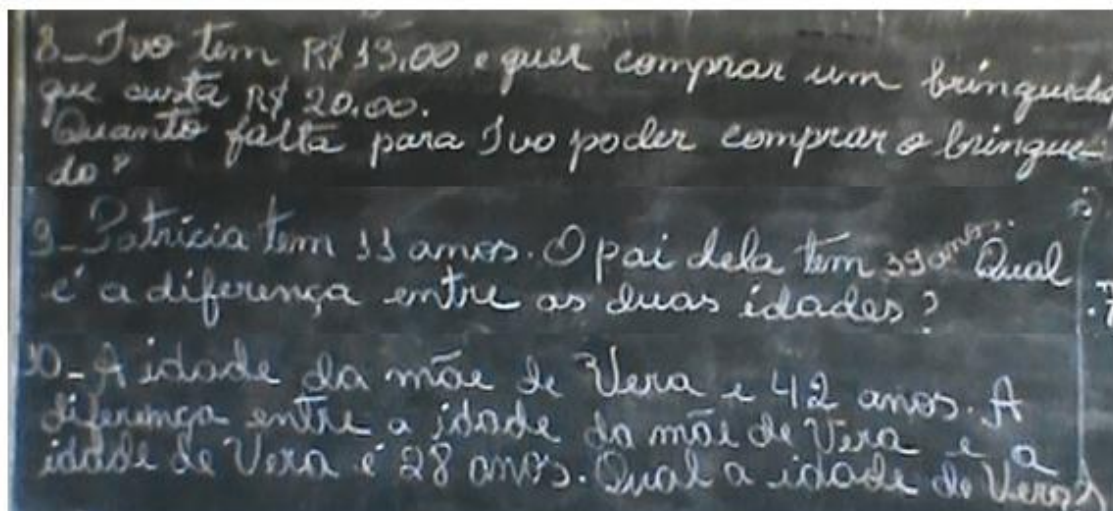 8-Ivo tem R$ 13,00 e quer comprar um brinquedo
que custa R$ 20,00.
Quanto falta para Ivo poder comprar o brinque-
do?
9-Patrícia tem 11 anos. O pai dela tem 39 anos. Qual
é a diferença entre as duas idades?
10-A idade da mãe de Vera é 42 anos. A
diferença entre a idade da mãe de Vera e a
idade de Vera é 28 anos. Qual a idade de Vera?